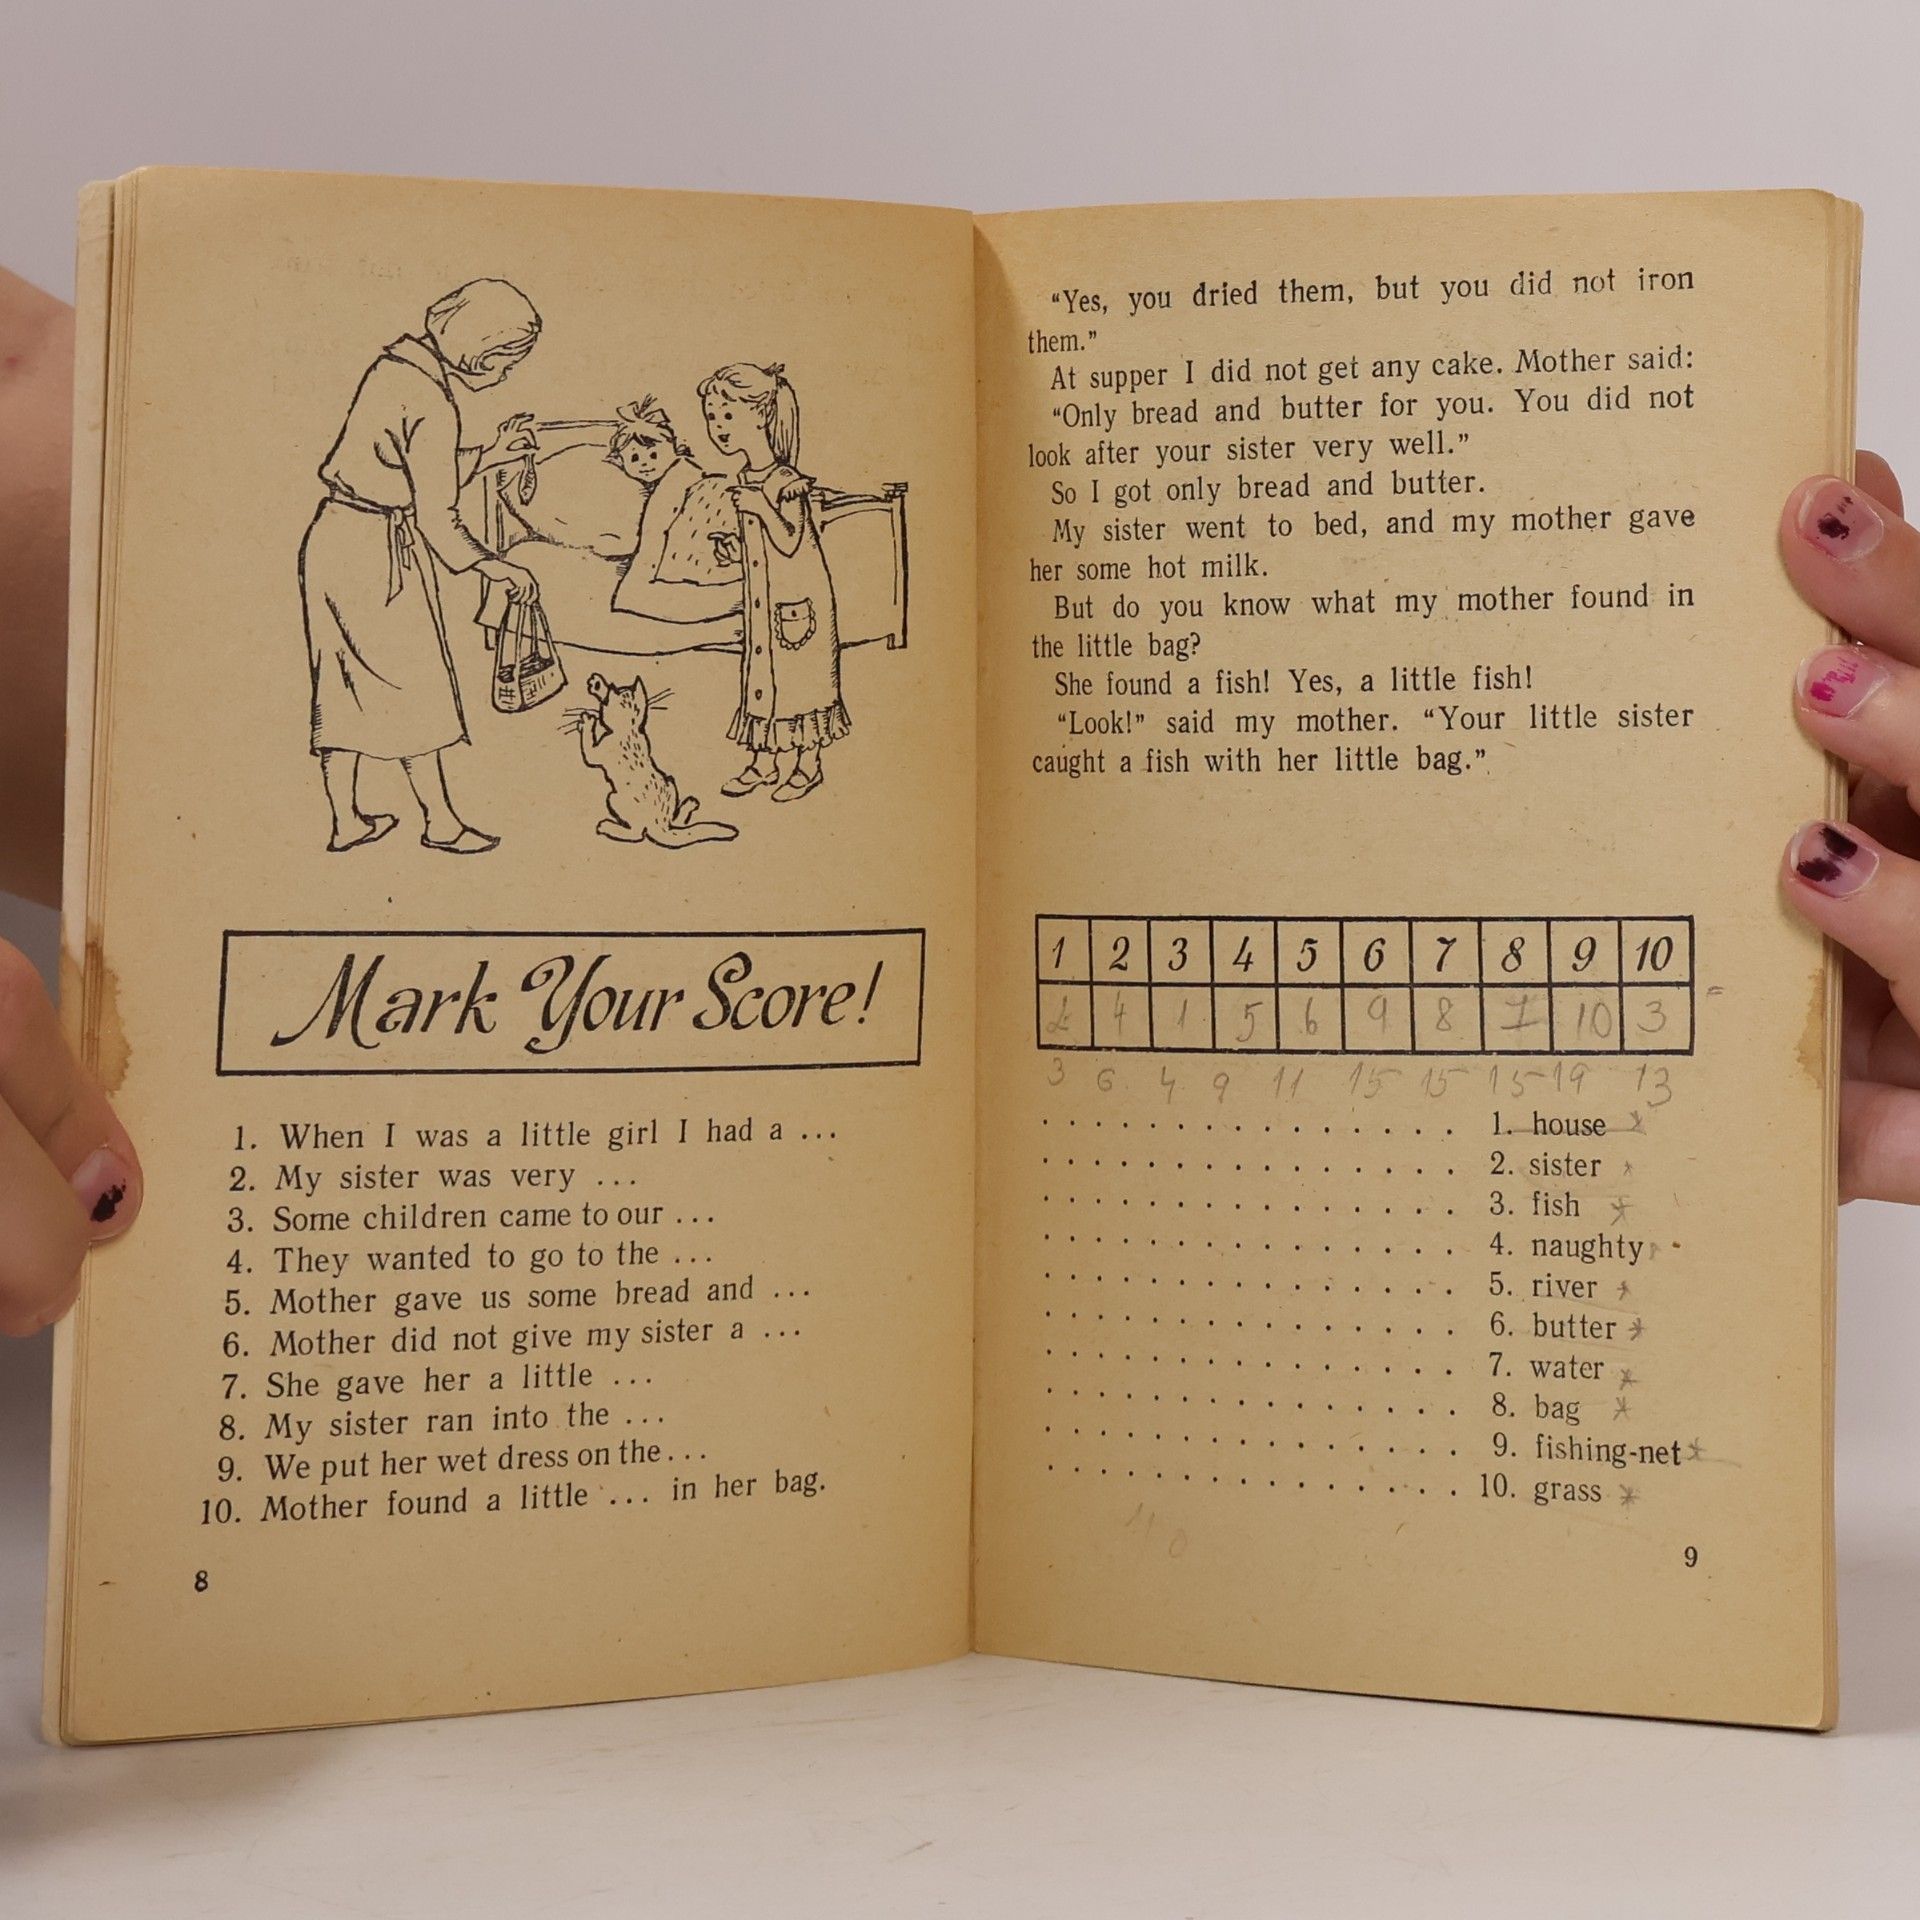 Mark Your Score!
1. When I was a little girl I had a ...
2. My sister was very ...
3. Some children came to our ...
4. They wanted to go to the ...
5. Mother gave us some bread and ...
6. Mother did not give my sister a ...
7. She gave her a little ...
8. My sister ran into the ...
9. We put her wet dress on the...
10. Mother found a little ... in her bag.
8
“Yes, you dried them, but you did not iron
them.”
At supper I did not get any cake. Mother said:
“Only bread and butter for you. You did not
look after your sister very well.”
So I got only bread and butter.
My sister went to bed, and my mother gave
her some hot milk.
But do you know what my mother found in
the little bag?
She found a fish! Yes, a little fish!
“Look!” said my mother. “Your little sister
caught a fish with her little bag.”
1 2 3 4 5 6 7 8 9 10
2 4 1 5 6 9 8 7 10 3 =
3 6 4 9 11 15 15 15 19 13
. . . . . . . . . . . . . . . 1. house
. . . . . . . . . . . . . . . 2. sister
. . . . . . . . . . . . . . . 3. fish
. . . . . . . . . . . . . . . 4. naughty
. . . . . . . . . . . . . . . 5. river
. . . . . . . . . . . . . . . 6. butter
. . . . . . . . . . . . . . . 7. water
. . . . . . . . . . . . . . . 8. bag
. . . . . . . . . . . . . . . 9. fishing-net
. . . . . . . . . . . . . . . 10. grass
9